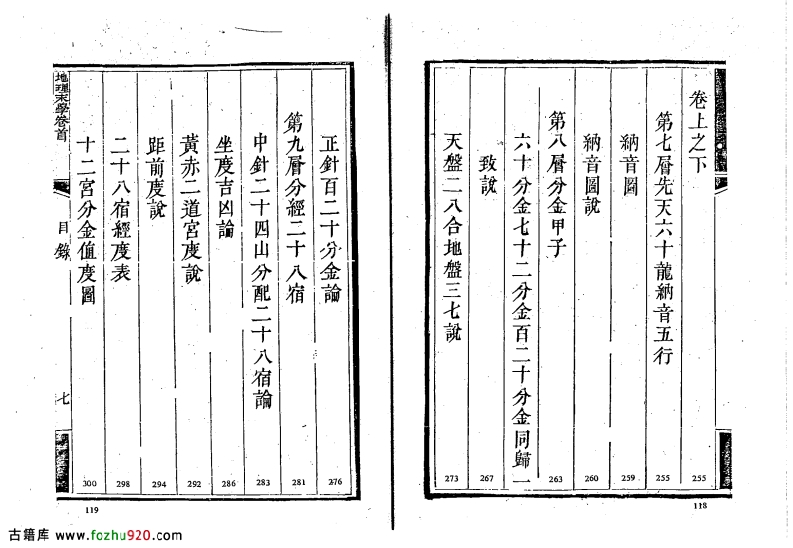 卷上之下
255
第七層先天六十龍納音五行
255
納音圖
259
納音圖說
260
第八層分金甲子
263
六十分金七十二分金百二十分金同歸一
致說
267
天盤二八合地盤三七說
273
118
正針百二十分金論
276
第九層分經二十八宿
281
中針二十四山分配二十八宿論
283
坐度吉凶論
286
黃赤二道宮度說
292
距前度說
294
二十八宿經度表
298
十二宮分金值度圖
300
地理末學卷首
目錄
七
119
古籍库 www.fozhu920.com